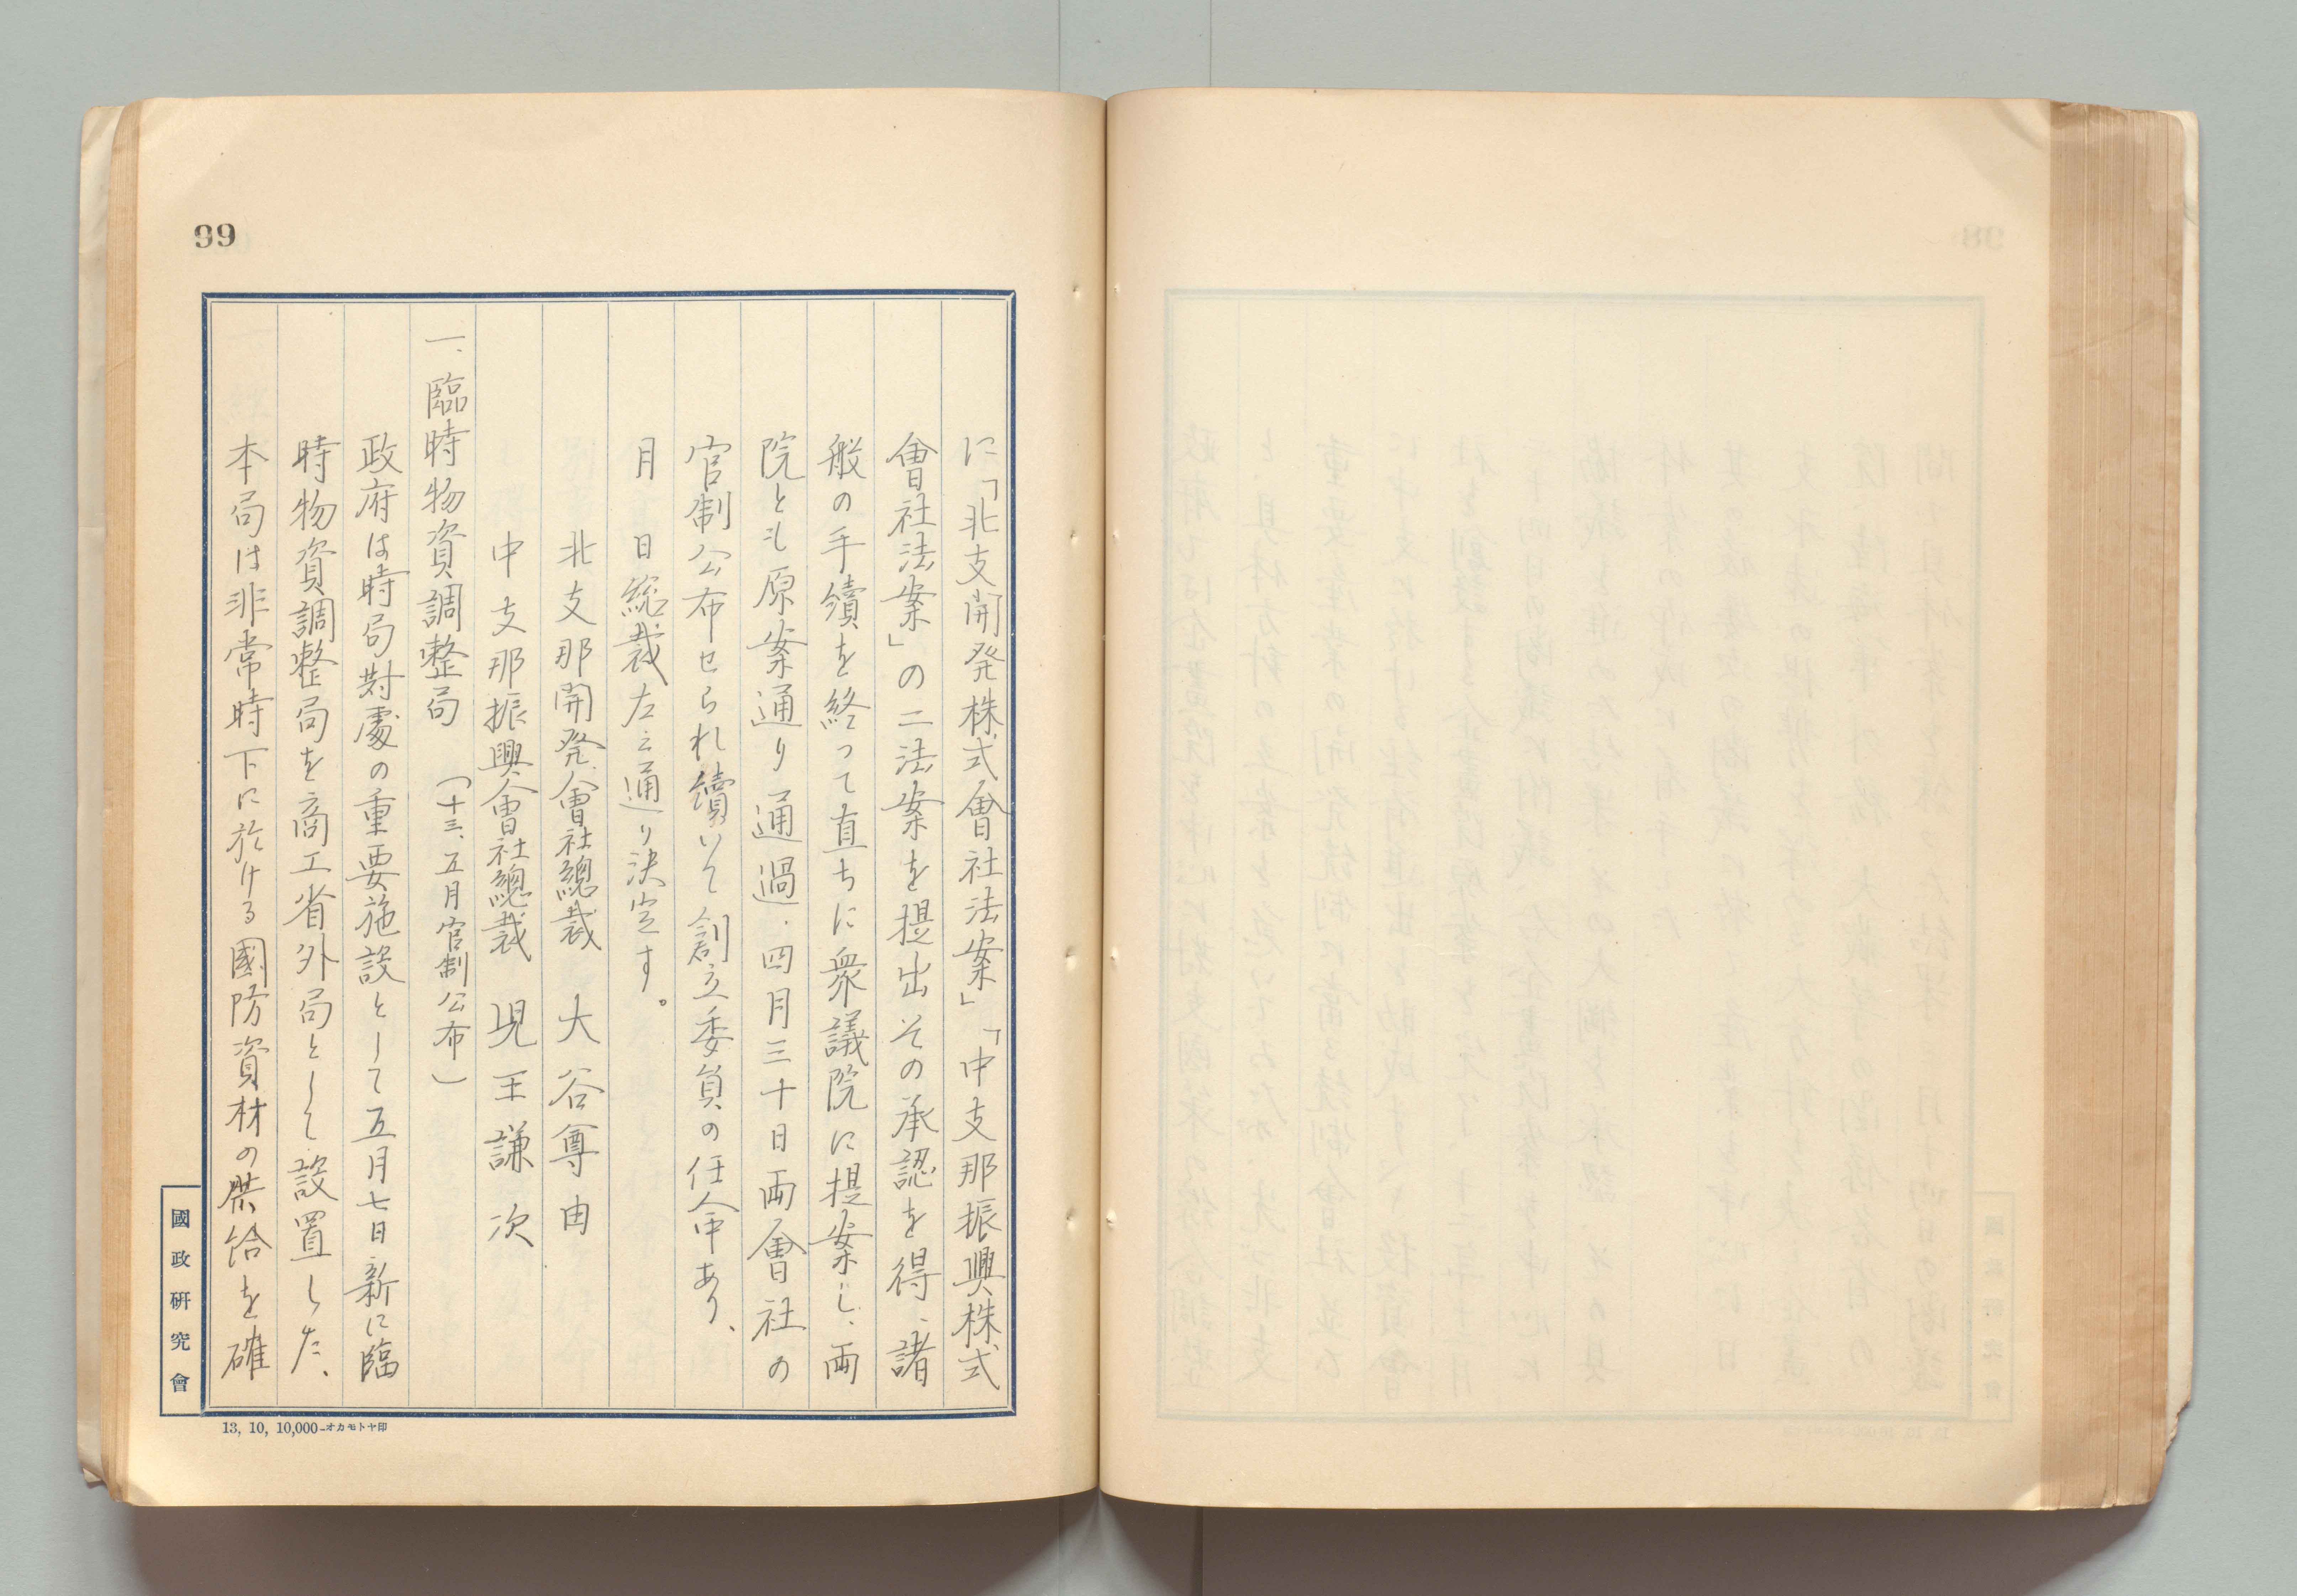 99
に「北支開発株式會社法案」「中支那振興株式
會社法案」の二法案を提出その承認を得、諸
般の手續を終って直ちに衆議院に提案し、両
院とも原案通り通過、四月三十日両會社の
官制公布せられ續いて創立委員の任命あり、
月　日総裁左之通り決定す。
北支那開発會社總裁　大谷尊由
中支那振興會社總裁　児玉謙次
一、臨時物資調整局　（十三、五月官制公布）
政府は時局對處の重要施設として五月七日新に臨
時物資調整局を商工省外局として設置した、
本局は非常時下に於ける國防資材の供給を確
國政研究會
13, 10, 10,000-オカモトヤ印